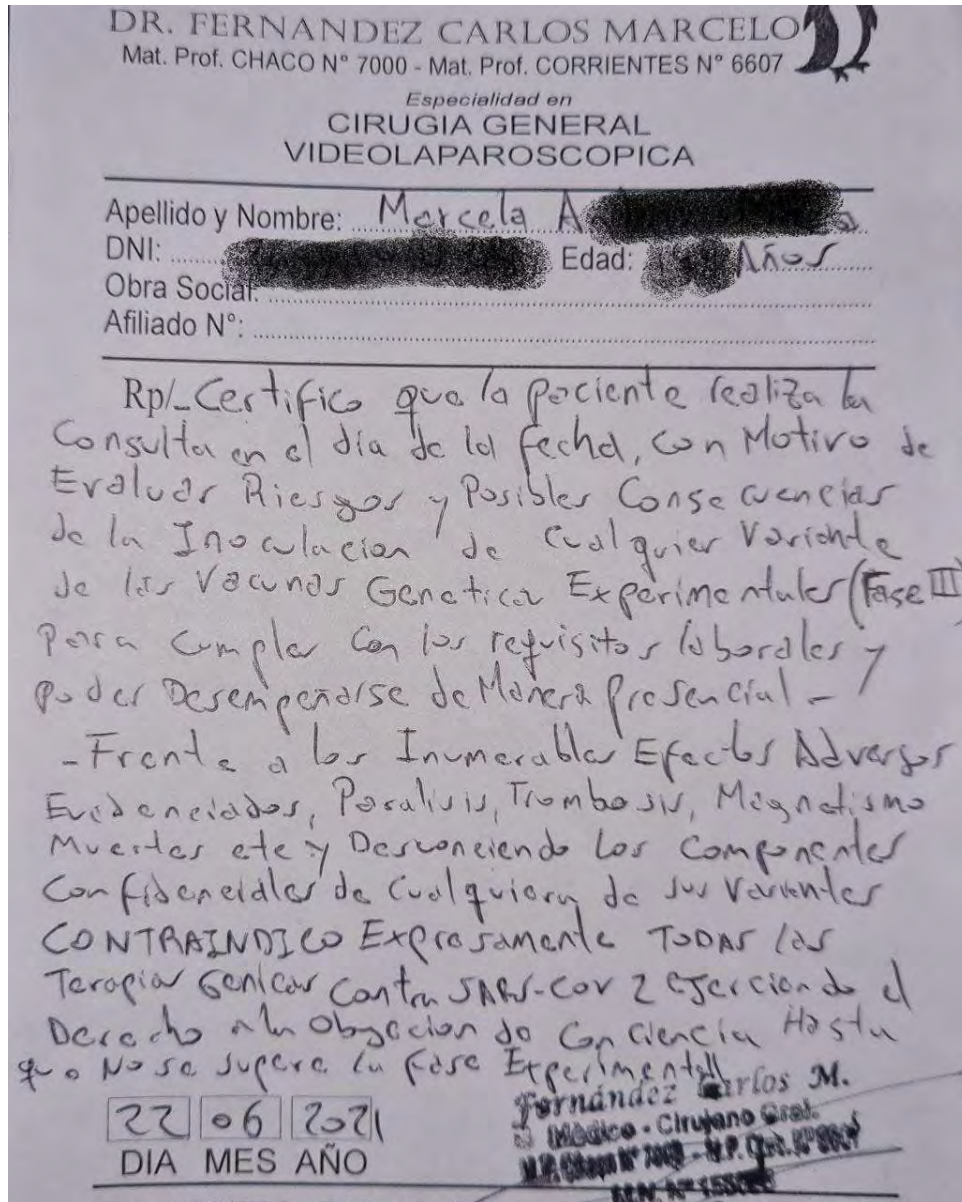 DR. FERNANDEZ CARLOS MARCELO
Mat. Prof. CHACO N° 7000 - Mat. Prof. CORRIENTES N° 6607
Especialidad en
CIRUGIA GENERAL
VIDEOLAPAROSCOPICA
Apellido y Nombre: Marcela A
DNI: Edad: Años
Obra Social:
Afiliado N°:
Rp/_ Certifico que la paciente realiza la
Consulta en el día de la fecha, con Motivo de
Evaluar Riesgos y Posibles Consecuencias
de la Inoculacion de Cualquier Variante
de las Vacunas Genetica Experimentales (Fase III)
Para Cumplir con los requisitos laborales y
poder Desempeñarse de Manera presencial -
- Frente a los Inumerables Efectos Adversos
Evidenciados, Paralisis, Trombosis, Magnetismo
Muertes etc y Desconociendo Los Componentes
Confidenciales de Cualquiera de sus Variantes
CONTRAINDICO Expresamente TODAS las
Terapias Genicas Contra SARS-COV 2 ejerciendo el
Derecho a la Obgecion de Conciencia Hasta
que No se supere la fase Experimental
22 06 2021
DIA MES AÑO
Fernández Carlos M.
Médico - Cirujano Gral.